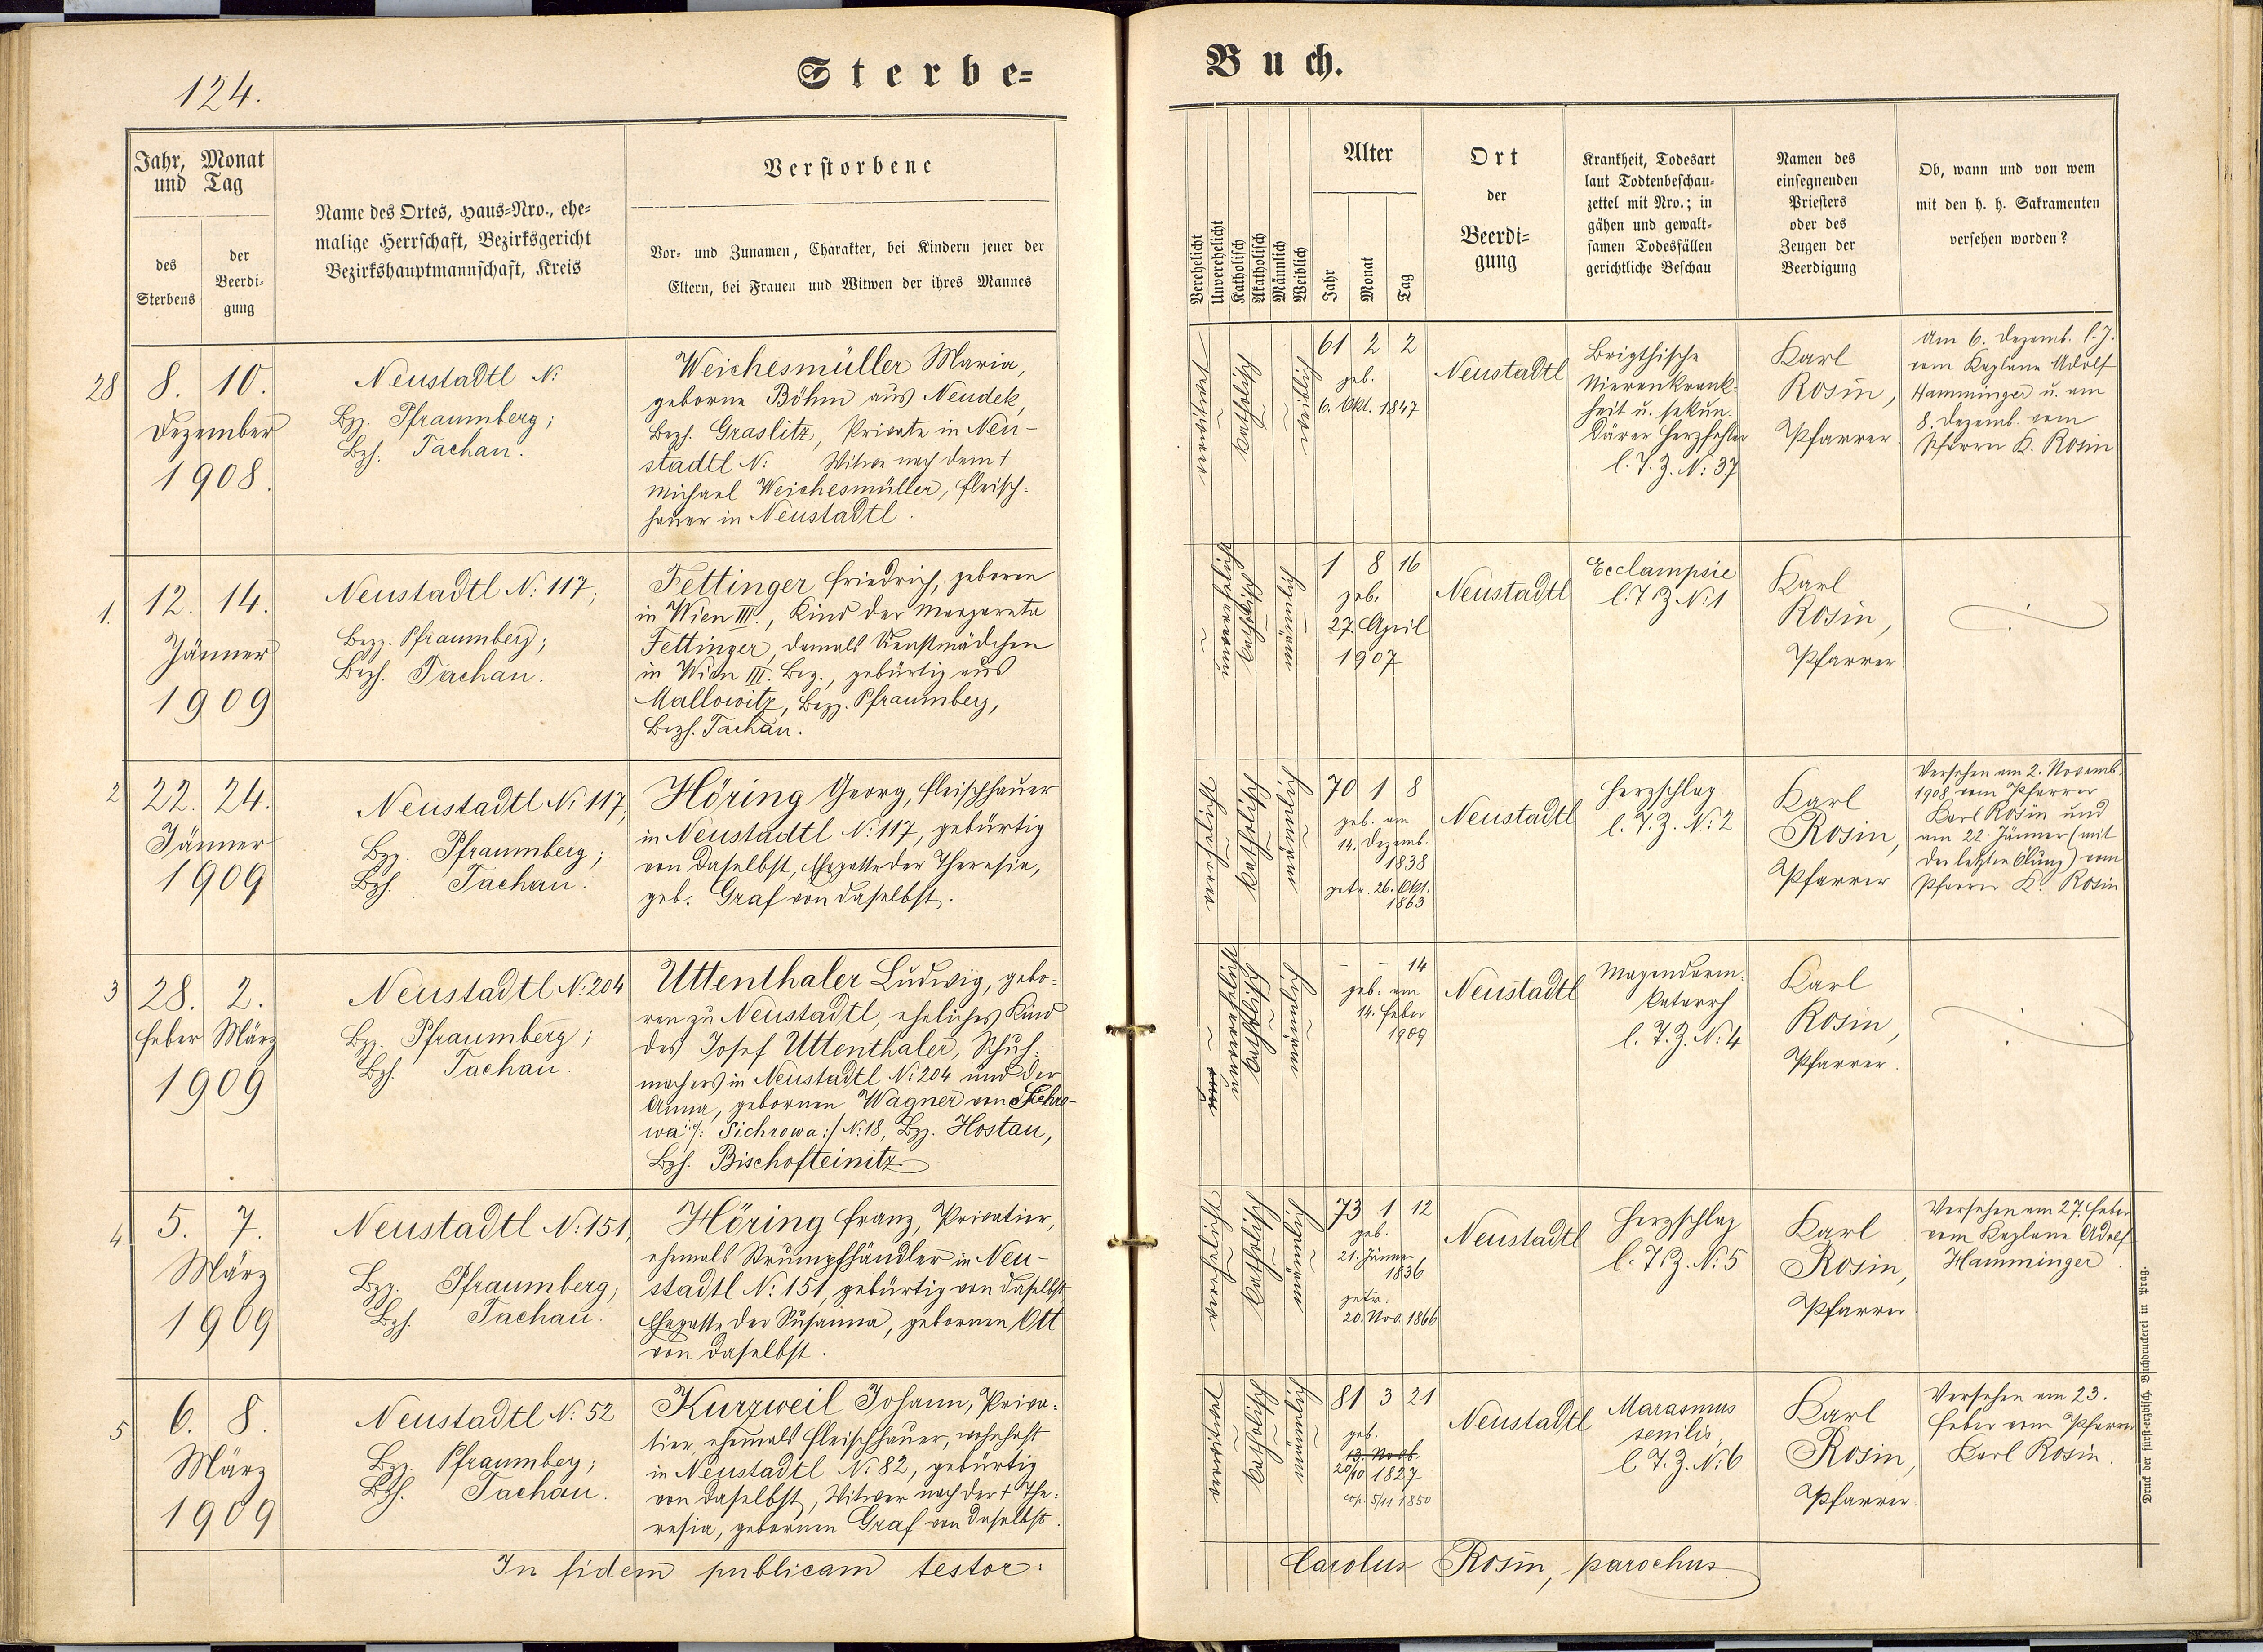 124.
Sterbe=
Jahr, Monat
und Tag
des
Sterbens
der
Beerdi-
gung
Name des Ortes, Haus-Nro., ehe-
malige Herrschaft, Bezirksgericht
Bezirkshauptmannschaft, Kreis
Verstorbene
Vor- und Zunamen, Charakter, bei Kindern jener der
Eltern, bei Frauen und Witwen der ihres Mannes
28
8. 10.
Dezember
1908.
Neustadtl N:
Bzg. Pfraumberg;
Bzh. Tachau.
Weichesmüller Maria,
geborne Böhm aus Neudek,
Bezh. Graslitz, Private in Neu-
stadtl N: Witwe nach dem †
Michael Weichesmüller, Fleisch-
hauer in Neustadtl.
1.
12. 14.
Jänner
1909
Neustadtl N: 117;
Bezg. Pfraumberg;
Bezh. Tachau.
Fettinger Friedrich, geboren
in Wien III., Kind der Margareta
Fettinger, damals Dienstmädchen
in Wien III. Bez., gebürtig aus
Mallowitz, Bezg. Pfraumberg,
Bezh. Tachau.
2
22. 24.
Jänner
1909
Neustadtl N: 117,
Bzg. Pfraumberg;
Bzh. Tachau.
Höring Georg, Fleischhauer
in Neustadtl N: 117, gebürtig
von daselbst, Ehegatte der Theresia,
geb. Graf von daselbst.
3
28. 2.
Feber März
1909
Neustadtl N: 204
Bzg. Pfraumberg;
Bzh. Tachau.
Uttenthaler Ludwig, gebo-
ren zu Neustadtl, eheliches Kind
des Josef Uttenthaler, Schuh-
machers in Neustadtl N: 204 und der
Anna, gebornen Wagner von Sichro-
wa /: Sichrowa :/ N: 18, Bzg. Hostau,
Bzh. Bischofteinitz.
4
5. 7.
März
1909
Neustadtl N: 151,
Bzg. Pfraumberg;
Bzh. Tachau.
Höring Franz, Privatier,
ehemals Strumpfhändler in Neu-
stadtl N: 151, gebürtig von daselbst,
Ehegatte der Susanna, gebornen Ott
von daselbst.
5
6. 8.
März
1909
Neustadtl N: 52
Bzg. Pfraumberg;
Bzh. Tachau.
Kurzweil Johann, Priva-
tier, ehemals Fleischhauer, wohnhaft
in Neustadtl N: 82, gebürtig
von daselbst, Witwer nach der † The-
resia, gebornen Graf von daselbst.
In fidem publicam testor:
Buch.
Verehelicht
Unverehelicht
Katholisch
Akatholisch
Männlich
Weiblich
Alter
Jahr
Monat
Tag
Ort
der
Beerdi-
gung
Krankheit, Todesart
laut Todtenbeschau-
zettel mit Nro.; in
gähen und gewalt-
samen Todesfällen
gerichtliche Beschau
Namen des
einsegnenden
Priesters
oder des
Zeugen der
Beerdigung
Ob, wann und von wem
mit den h. h. Sakramenten
versehen worden?
verwitwet
katholisch
weiblich
61 2 2
geb.
6. Okt. 1847
Neustadtl
Brigthische
Nierenkrank-
heit u. sekun-
därer Herzfehler
l. T. Z. N: 37
Karl
Rosin,
Pfarrer
Am 6. Dezemb. l. J.
vom Kaplane Adolf
Hamminger u. am
8. Dezemb. vom
Pfarrer K. Rosin
unverehelicht
katholisch
männlich
1 8 16
geb.
27. April
1907
Neustadtl
Ecclampsie
l. T. Z. N: 1
Karl
Rosin,
Pfarrer
verehelicht
katholisch
männlich
70 1 8
geb. am
14. Dezemb.
1838
getr. 26. Okt.
1863
Neustadtl
Herzschlag
l. T. Z. N: 2
Karl
Rosin,
Pfarrer
Versehen am 2. Novemb.
1908 vom Pfarrer
Karl Rosin und
am 22. Jänner (mit
der letzten Ölung) vom
Pfarrer K. Rosin
unverehelicht
katholisch
männlich
- - 14
geb. am
14. Feber
1909.
Neustadtl
Magendarm-
katarrh
l. T. Z. N: 4
Karl
Rosin,
Pfarrer.
verehelicht
katholisch
männlich
73 1 12
geb.
21. Jänner
1836
getr.
20. Nov. 1866
Neustadtl
Herzschlag
l. T. Z. N: 5
Karl
Rosin,
Pfarrer
Versehen am 27. Feber
vom Kaplane Adolf
Hamminger.
verwitwet
katholisch
männlich
81 3 21
geb.
13. Novb.
20/10 1827
cop. 5/11 1850
Neustadtl
Marasmus
senilis,
l. T. Z. N: 6
Karl
Rosin,
Pfarrer.
Versehen am 23.
Feber vom Pfarrer
Karl Rosin.
Carolus Rosin, parochus
Druck der fürst-erzbisch. Buchdruckerei in Prag.